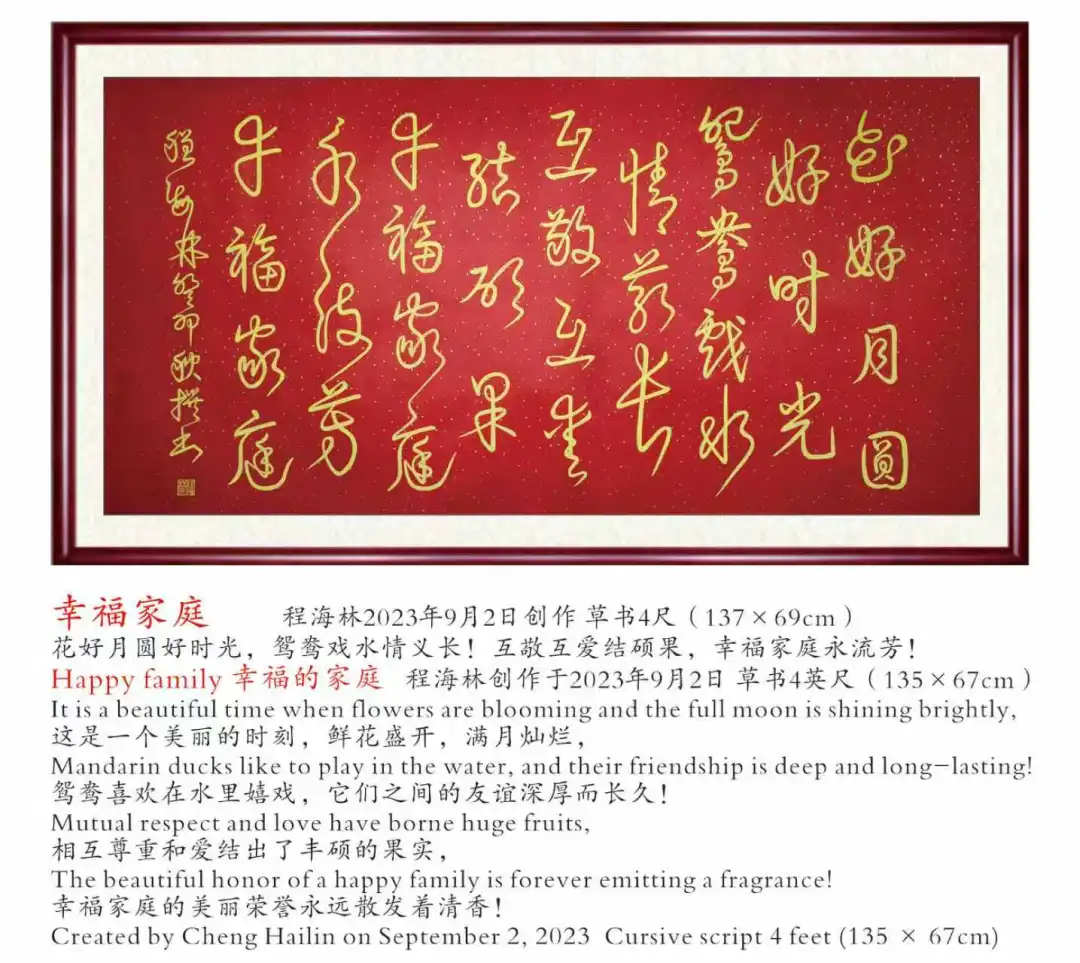 花好月圓
好时光
鸳鸯戏水
情义长
互敬互爱
结硕果
幸福家庭
永流芳
幸福家庭
程海林癸卯秋撰书
幸福家庭 程海林2023年9月2日创作 草书4尺（137×69cm）
花好月圆好时光，鸳鸯戏水情义长！互敬互爱结硕果，幸福家庭永流芳！
Happy family 幸福的家庭 程海林创作于2023年9月2日 草书4英尺（135×67cm）
It is a beautiful time when flowers are blooming and the full moon is shining brightly,
这是一个美丽的时刻，鲜花盛开，满月灿烂，
Mandarin ducks like to play in the water, and their friendship is deep and long-lasting!
鸳鸯喜欢在水里嬉戏，它们之间的友谊深厚而长久！
Mutual respect and love have borne huge fruits,
相互尊重和爱结出了丰硕的果实，
The beautiful honor of a happy family is forever emitting a fragrance!
幸福家庭的美丽荣誉永远散发着清香！
Created by Cheng Hailin on September 2, 2023 Cursive script 4 feet (135 × 67cm)